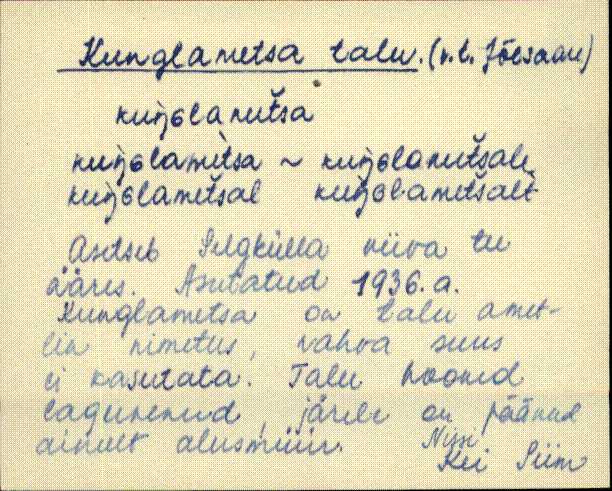 Kunglametsa talu. (v.t. Jõesaau)
kuŋɢlametša
kuŋɢlametsa ~ kuŋɢlametšale
kuŋɢlametšal kuŋɢlametšalt
Asetseb Selgkülla viiva tee
ääres. Asutatud 1936. a.
Kunglametsa on talu amet-
lin nimetus, rahva suus
ei kasutata. Talu hooned
lagunenud, järele on jäänud
ainult alusmüür.
Nissi
Kei Siim